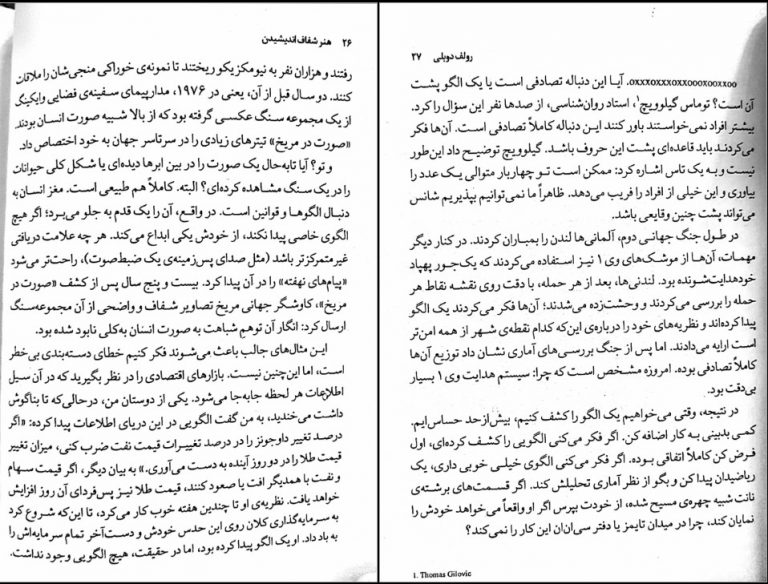 ۲۶ هنر شفاف اندیشیدن
رفتند و هزاران نفر به نیومکزیکو ریختند تا نمونه‌ی خوراکی منجی‌شان را ملاقات
کنند. دو سال قبل از آن، یعنی در ۱۹۷۶، مدارپیمای سفینه‌ی فضایی وایکینگ
از یک مجموعه سنگ عکسی گرفته بود که از بالا شبیه صورت انسان بودند.
«صورت در مریخ» تیترهای زیادی را در سرتاسر جهان به خود اختصاص داد.
و تو؟ آیا تابه‌حال یک صورت را در بین ابرها دیده‌ای یا شکل کلی حیوانات
را در یک سنگ مشاهده کرده‌ای؟ البته. کاملاً هم طبیعی است. مغز انسان به
دنبال الگوها و قوانین است. در واقع، آن را یک قدم به جلو می‌برد؛ اگر هیچ
الگوی خاصی پیدا نکند، از خودش یکی ابداع می‌کند. هر چه علامت دریافتی
غیرمتمرکزتر باشد (مثل صدای پس‌زمینه‌ی یک ضبط‌صوت)، راحت‌تر می‌شود
«پیام‌های نهفته» را در آن پیدا کرد. بیست و پنج سال پس از کشف «صورت در
مریخ»، کاوشگر جهانی مریخ تصاویر شفاف و واضحی از آن مجموعه‌سنگ
ارسال کرد: انگار آن توهمِ شباهت به صورت انسان به‌کلی نابود شده بود.
این مثال‌های جالب باعث می‌شوند فکر کنیم خطای دسته‌بندی بی‌خطر
است، اما این‌چنین نیست. بازارهای اقتصادی را در نظر بگیرید که در آن سیل
اطلاعات هر لحظه جابه‌جا می‌شود. یکی از دوستان من، درحالی‌که تا بناگوش
داشت می‌خندید، به من گفت الگویی در این دریای اطلاعات پیدا کرده: «اگر
درصد تغییر داوجونز را در درصد تغییرات قیمت نفت ضرب کنی، میزان تغییر
قیمت طلا را در دو روز آینده به دست می‌آوری.» به بیان دیگر، اگر قیمت سهام
و نفت با همدیگر افت یا صعود کنند، قیمت طلا نیز پس‌فردای آن روز افزایش
خواهد یافت. نظریه‌ی او تا چندین هفته خوب کار می‌کرد، تا این‌که شروع کرد
به سرمایه‌گذاری کلان روی این حدس خودش و دست‌آخر تمام سرمایه‌اش را
به باد داد. او یک الگو پیدا کرده بود، اما در حقیقت، هیچ الگویی وجود نداشت.
رولف دوبلی ۲۷
oxxxoxxxoxxooxooxxoo. آیا این دنباله تصادفی است یا یک الگو پشت
آن است؟ توماس گیلوویچ۱، استاد روان‌شناسی، از صدها نفر این سؤال را کرد.
بیشتر افراد نمی‌خواستند باور کنند این دنباله کاملاً تصادفی است. آن‌ها فکر
می‌کردند باید قاعده‌ای پشت این حروف باشد. گیلوویچ توضیح داد این‌طور
نیست و به یک تاس اشاره کرد: ممکن است تو چهاربار متوالی یک عدد را
بیاوری و این خیلی از افراد را فریب می‌دهد. ظاهراً ما نمی‌توانیم بپذیریم شانس
می‌تواند پشت چنین وقایعی باشد.
در طول جنگ جهانی دوم، آلمانی‌ها لندن را بمباران کردند. در کنار دیگر
مهمات، آن‌ها از موشک‌های وی ۱ نیز استفاده می‌کردند که یک‌جور پهپاد
خودهدایت‌شونده بود. لندنی‌ها، بعد از هر حمله، با دقت روی نقشه نقاط هر
حمله را بررسی می‌کردند و وحشت‌زده می‌شدند؛ آن‌ها فکر می‌کردند یک الگو
پیدا کرده‌اند و نظریه‌های خود را درباره‌ی این‌که کدام نقطه‌ی شهر از همه امن‌تر
است ارایه می‌دادند. اما پس از جنگ بررسی‌های آماری نشان داد توزیع آن‌ها
کاملاً تصادفی بوده. امروزه مشخص است که چرا: سیستم هدایت وی ۱ بسیار
بی‌دقت بود.
در نتیجه، وقتی می‌خواهیم یک الگو را کشف کنیم، بیش‌ازحد حساس‌ایم.
کمی بدبینی به کار اضافه کن. اگر فکر می‌کنی الگویی را کشف کرده‌ای، اول
فرض کن کاملاً اتفاقی بوده. اگر فکر می‌کنی الگوی خیلی خوبی داری، یک
ریاضیدان پیدا کن و بگو از نظر آماری تحلیلش کند. اگر قسمت‌های برشته‌ی
نانت شبیه چهره‌ی مسیح شده، از خودت بپرس اگر او واقعاً می‌خواهد خودش را
نمایان کند، چرا در میدان تایمز یا دفتر سی‌ان‌ان این کار را نمی‌کند؟
1. Thomas Gilovic